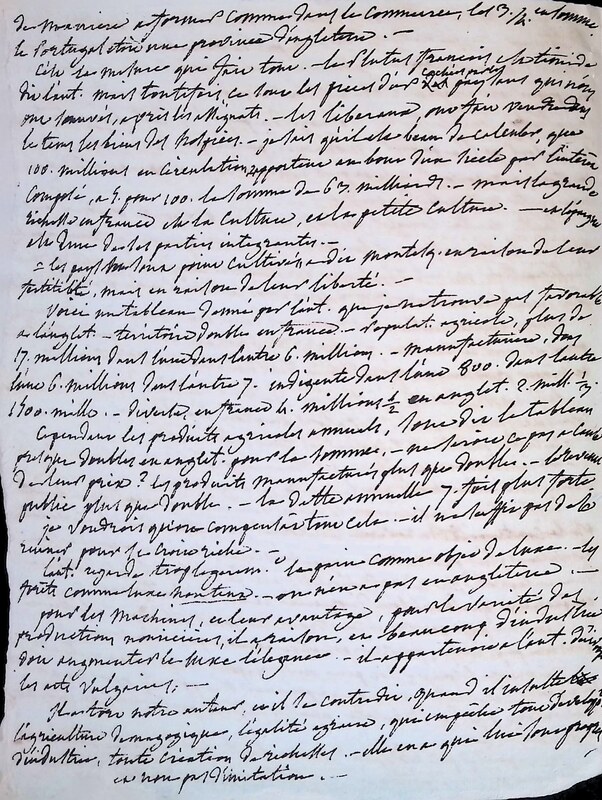 de manière à former comme dans le commerce, les 3/4 en somme.
le Portugal étoit une province d'angleterre. —
C'est la mesure qui fait tout. — le Plutus françois est timide
dit l'aut. mais toutefois ce sont les pièces d'or cachées par les paysans qui n'ont
sauvés, après les assignats. — les libéraux, ont fait vendre dans
le tems les biens des hospices. — je sais qu'il est beau de calculer, que
100. millions en circulation, apportent au bout d'un siècle par l'intérêt
composé, à 5. pour 100. la somme de 67. milliards. — mais la grande
richesse en france est la Culture, et la petite Culture. — en Espagne
est une de ses parties intégrantes. —
= les pays ne sont point cultivés a dit montesq. en raison de leur
fertilité, mais en raison de leur liberté. —
Voici un tableau donné par l'aut. que je ne trouve pas favorable
à l'anglet. — territoire double en france. — populat. agricole, plus de
17. millions dans l'une dans l'autre 6. millions. — manufacturière, dans
l'une 6. millions dans l'autre 7. indigente dans l'une 800. dans l'autre
1500. mille. — diverse, en france 4. millions 1/2 en anglet. 2. mill. 1/2.
Cependant les produits agricoles annuels, sont dit le tableau
presque doubles en anglet. pour la somme, — ne seroit ce pas à cause
de leur prix? les produits manufacturés plus que doubles. — le revenu
public plus que double. — la dette annuelle 7. fois plus forte
je voudrois qu'on compensât tout cela. — il ne suffit pas de se
ruiner pour se croire riche. —
l'aut. regarde trop légerem.t la guerre comme objet de luxe. — les
forêts comme luxe honteux. — on n'en a pas en angleterre. —
pour les machines, et leur avantage, pour la variété des
productions nourricières, il a raison, et beaucoup d'industrie
doit augmenter le luxe l'élégance. — il appartenoit à l'aut. d'
les arts vulgaires; —
notre auteur, où il se contredit, quand il
l'agriculture démagogique, l'égalité agraire, qui empêche tout
d'industrie, toute création de richesses. — elle en a qui lui sont propres
et non pas d'imitation. —